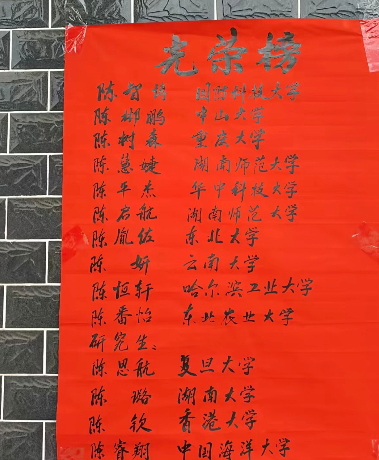 光荣榜
陈智科 国防科技大学
陈郴鹏 中山大学
陈树森 重庆大学
陈慧婕 湖南师范大学
陈平杰 华中科技大学
陈启航 湖南师范大学
陈胤 东北大学
陈妍 云南大学
陈恒轩 哈尔滨工业大学
陈香怡 东北农业大学
研究生：
陈思航 复旦大学
陈璐 湖南大学
陈钦 香港大学
陈睿翔 中国海洋大学